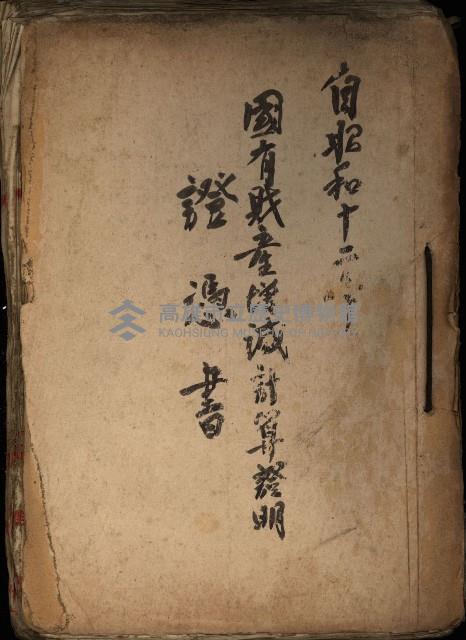 自昭和十
國有財產增減計算證明
證憑書
高雄市立歷史博物館
KAOHSIUNG MUSEUM OF HISTORY